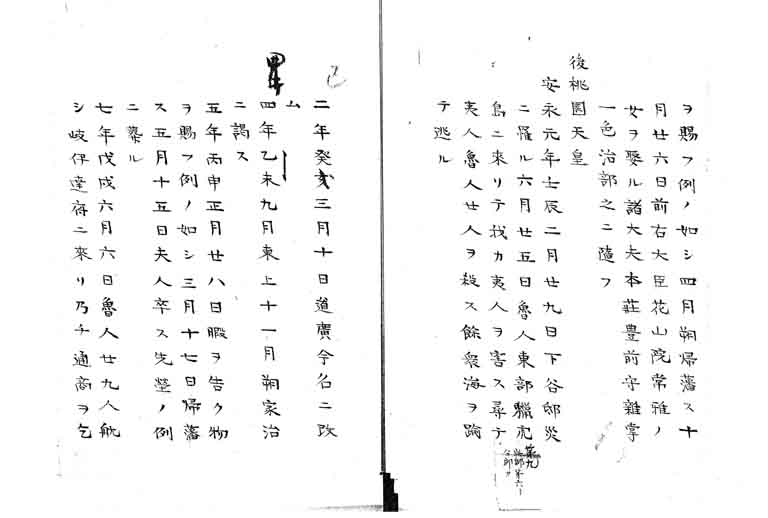 ヲ賜フ例ノ如シ四月朔帰藩ス十
月廿六日前右大臣花山院常雅ノ
女ヲ娶ル諸大夫本荘豊前守雜掌
一色治部之ニ隨フ
後桃園天皇
安永元年壬辰二月廿九日下谷邸災
ニ罹ル六月廿五日魯人東部獵虎
島ニ來リテ我カ夷人ヲ害ス尋テ
夷人魯人廿人ヲ殺ス餘衆海ヲ踰
テ逃ル
二年癸亥三月十日道廣今名ニ改
ム
四年乙未九月東上十一月朔家治
ニ謁ス
五年丙申正月廿八日暇ヲ告ク物
ヲ賜フ例ノ如シ三月十七日帰藩
ス五月十五日夫人卒ス先塋ノ例
ニ葬ル
七年戊戌六月六日魯人廿九人航
シ岐伊達府ニ來リ乃チ通商ヲ乞